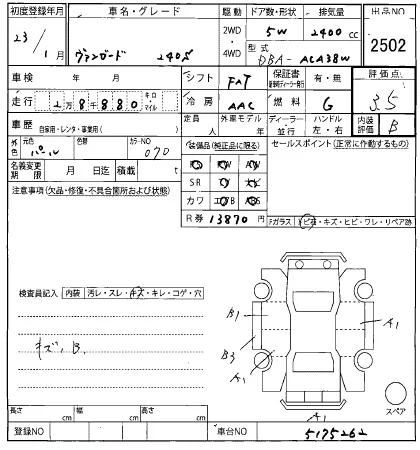 初度登録年月 車名・グレード 駆動 ドア数・形状 排気量 出品NO
23/1月 ヴァンガード 240S 2WD・4WD 5W 2400cc 2502
型式 DBA-ACA38W
車検 年 月 シフト FAT 保証書 有・無 評価点 3.5
走行 2万8千880 キロ・マイル 冷房 AAC 燃料 G
車歴 自家用・レンタ・事業用( ) 定員 人 外車モデル 年 ディーラー・並行 ハンドル 左・右 内装評価 B
外色 元色 パール 色替 カラーNO 070 装備品(純正品に限る) セールスポイント(正常に作動するもの)
名義変更期限 月 日迄 積載 t SR
注意事項(欠品・修復・不具合箇所および状態) カワ
R券 13870円 Fガラス 飛石・キズ・ヒビ・ワレ・リペア跡
検査員記入 内装 汚レ・スレ・キズ・キレ・コゲ・穴
キズ、B.
B1 A1
B3
A1
A1 スペア
長さ cm 幅 cm 高さ cm
登録NO 車台NO 5175262